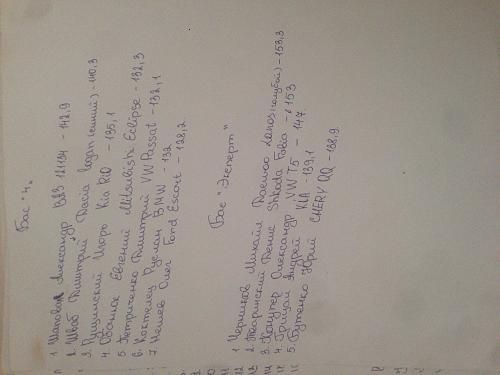 Бас "4"
1 Шаповал Александр ВАЗ 21134 - 142,9
2. Швоб Дмитрий Dacia Logan (синий) - 140,3
3. Рушинский Игорь Kia Rio - 135,1
4. Обаток Евгений Mitsubishi Eclipse - 132,3
5 Петриченко Дмитрий VW Passat - 132,1
6. Коктелец Руслан BMW - 132
7 Нешев Олег Ford Escort - 128,2
Бас "Эксперт"
1 Черников Михайл Daewoo Lanos (голубой) - 158,3
2. Тваринский Денис Shkoda Fabia - 153
3. Конупер Олександр VW T5 - 147
4. Грицай Андрей KIA - 139,1
5. Бутенко Юрий CHERY QQ - 138,9